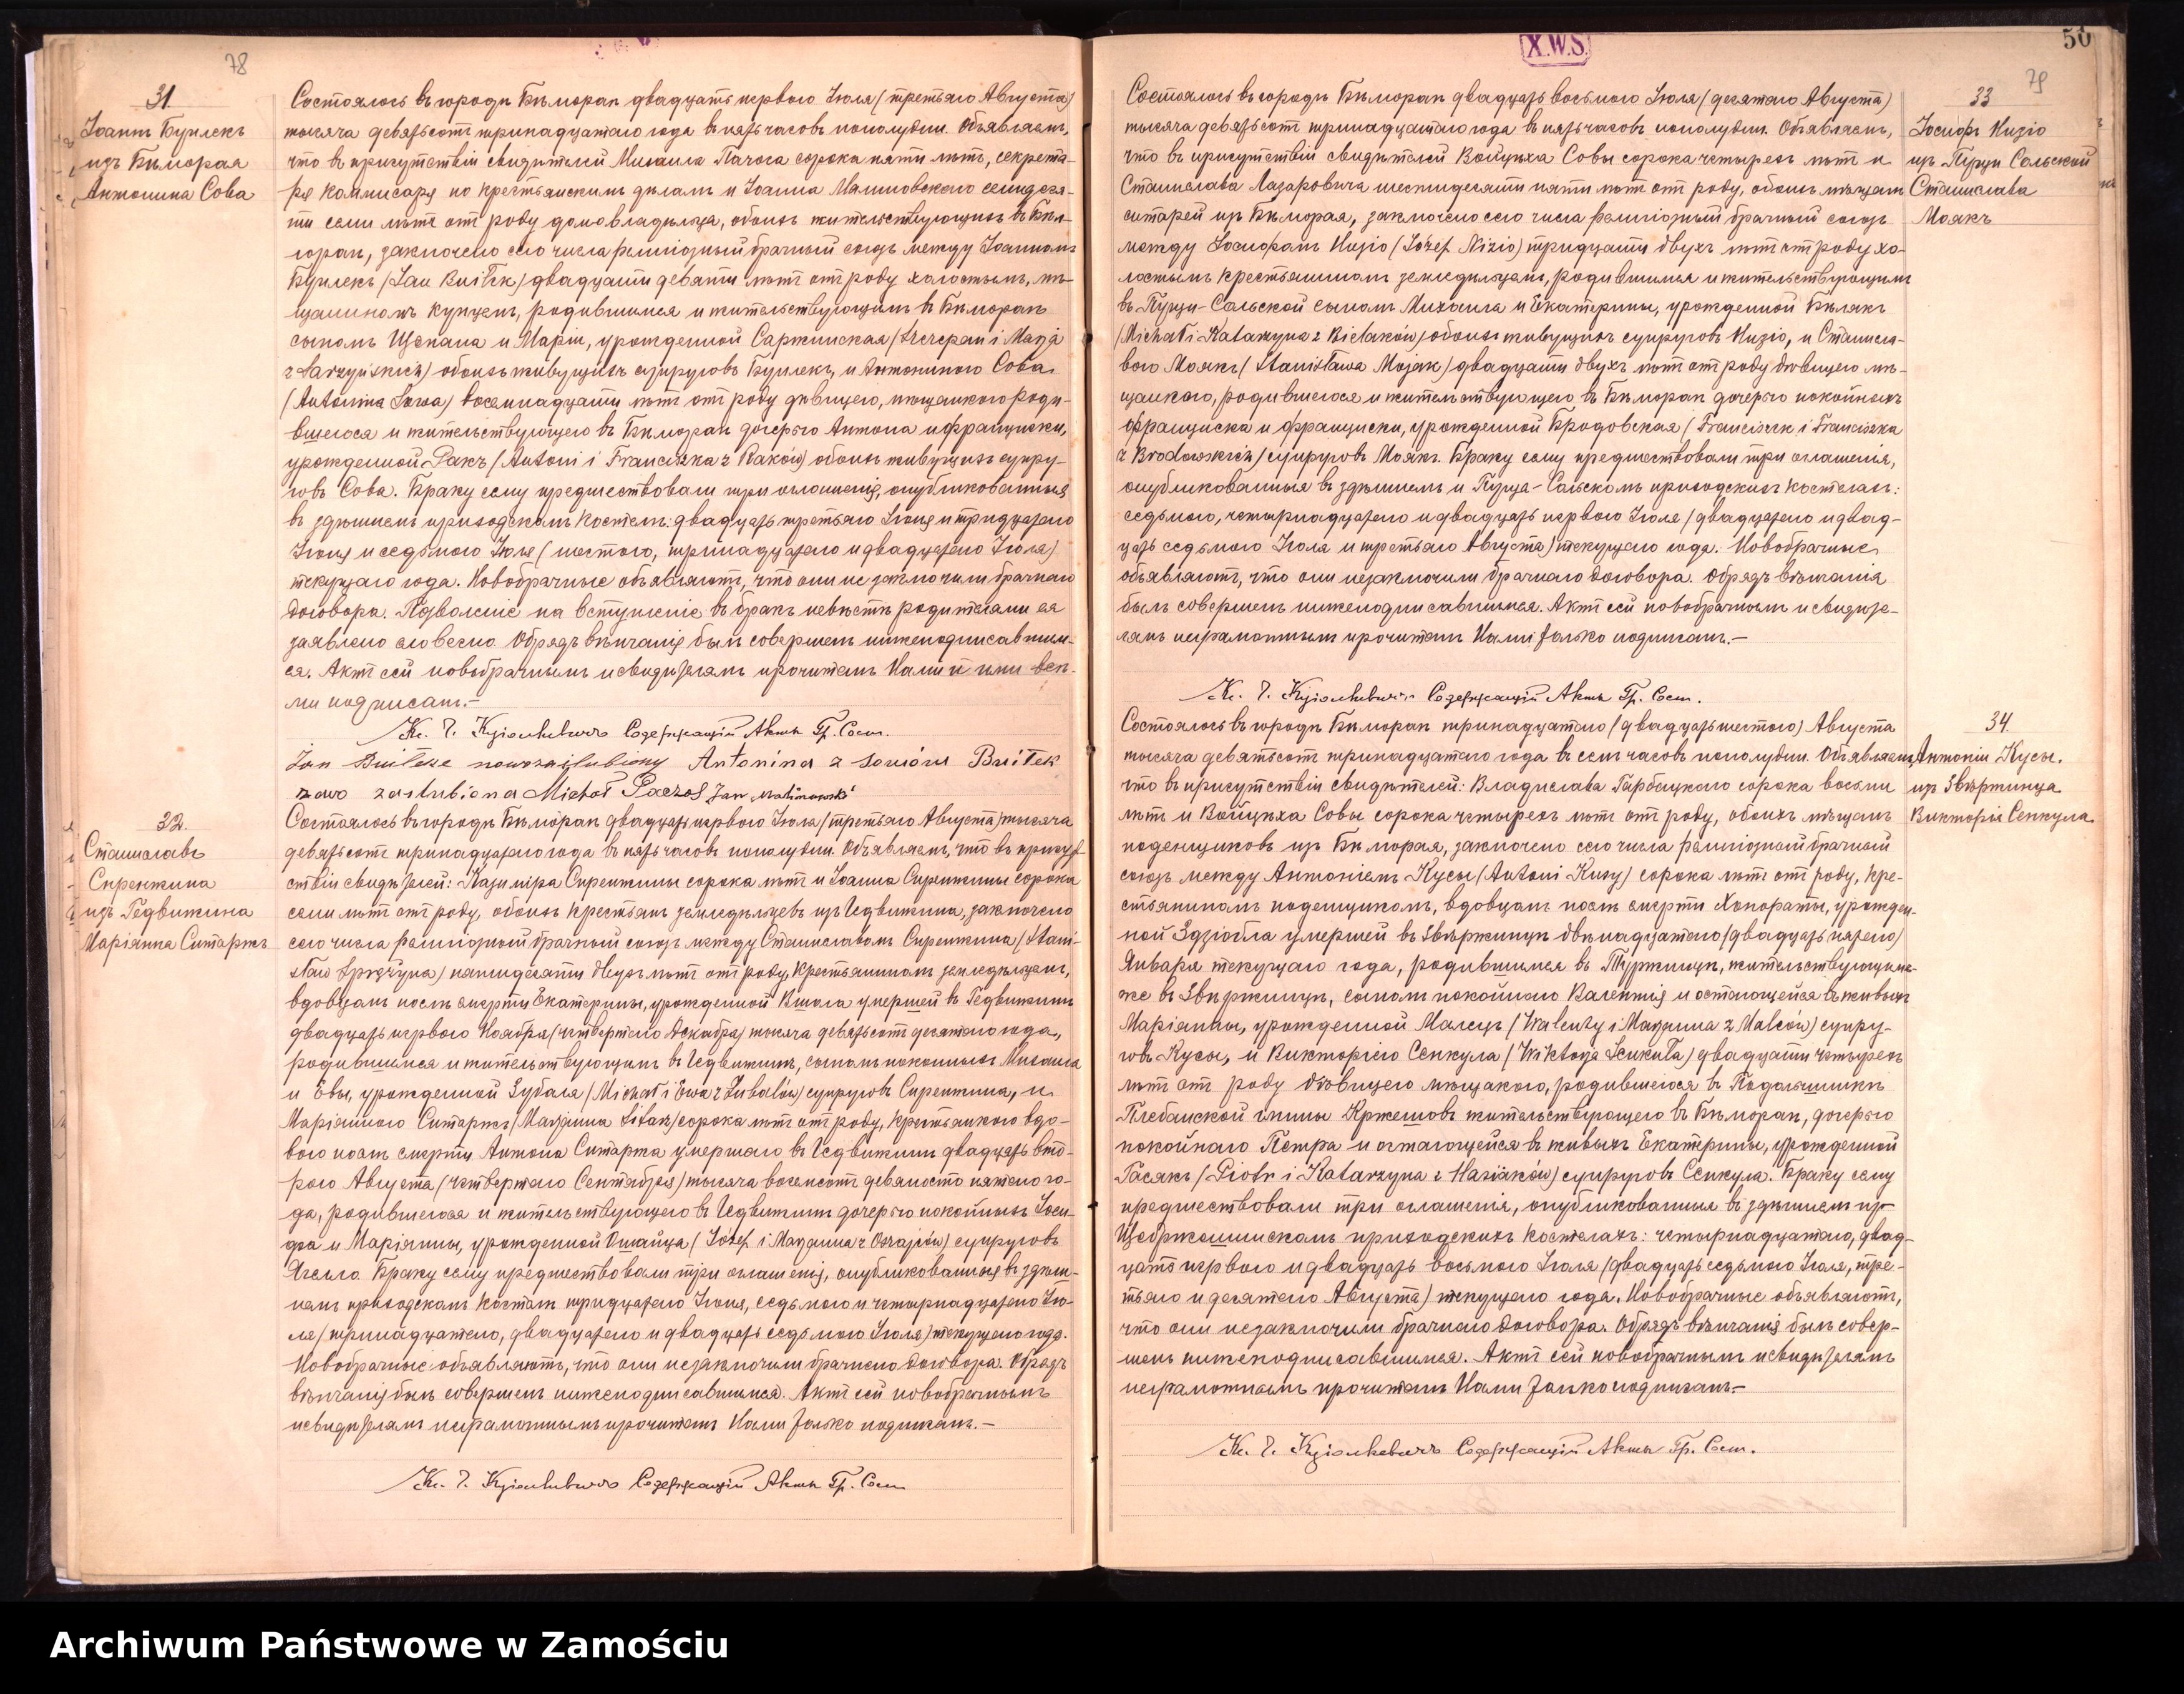 78
31
Іоаннъ Буилекъ
изъ Бѣлорая
Антонина Сова
Состоялось въ городѣ Бѣлораѣ двадцать перваго Іюля (третьяго Августа)
тысяча девятьсотъ тринадцатаго года въ пять часовъ пополудни. Объявляемъ,
что въ присутствіи свидѣтелей Михаила Пачоса сорока пяти лѣтъ, секрета-
ря коммисаря по крестьянскимъ дѣламъ и Іоанна Малиновскаго семидеся-
ти семи лѣтъ отъ роду домовладѣльца, обоихъ жительствующихъ въ Бѣл-
гораѣ, заключено сего числа религіозный брачный союзъ между Іоанномъ
Буилекъ (Jan Buiłek) двадцати девяти лѣтъ отъ роду холостымъ, мѣ-
щаниномъ купцемъ, родившимся и жительствующимъ въ Бѣлораѣ
сыномъ Щепана и Маріи, урожденной Саржинская (Szczepan i Marja
z Sarzyńskich) обоихъ живущихъ супруговъ Буилекъ, и Антониною Сова
(Antonina Sowa) восемнадцати лѣтъ отъ роду дѣвицею, мѣщанкою роди-
вшеюся и жительствующею въ Бѣлораѣ дочерью Антона и Франциски,
урожденной Ракъ (Antoni i Franciszka z Raków) обоихъ живущихъ супру-
говъ Сова. Браку сему предшествовали три оглашенія, опубликованныя
въ здѣшнемъ приходскомъ костелѣ: двадцать третьяго Іюня и тридцатаго
Іюня и седьмого Іюля (шестого, тринадцатаго и двадцатаго Іюля)
текущаго года. Новобрачные объявляютъ, что они не заключили брачнаго
договора. Позволеніе на вступленіе въ бракъ невѣстѣ родителями ея
заявлено словесно. Обрядъ вѣнчанія былъ совершенъ нижеподписавшим-
ся. Актъ сей новобрачнымъ и свидѣтелямъ прочитанъ Нами и ими всѣ-
ми подписанъ.—
Содержащій Акты Гр. Сост.
Jan Buiłek nowozaślubiony Antonina z Sowiów Buiłek
nowo zaślubiona Michał Paczos Jan Malinowski
32.
Станиславъ
Спренжина
изъ Гедвижина
Маріанна Ситаржъ
Состоялось въ городѣ Бѣлораѣ двадцать перваго Іюля (третьяго Августа) тысяча
девятьсотъ тринадцатаго года въ пять часовъ пополудни. Объявляемъ, что въ присут-
ствіи свидѣтелей: Казиміра Спренжины сорока лѣтъ и Іоанна Спренжины сорока
семи лѣтъ отъ роду, обоихъ крестьянъ земледѣльцевъ изъ Гедвижина, заключено
сего числа религіозный брачный союзъ между Станиславомъ Спренжина (Stani-
sław Sprężyna) пятидесяти двухъ лѣтъ отъ роду, крестьяниномъ земледѣльцемъ,
вдовцомъ послѣ смерти Екатерины, урожденной Кшола умершей въ Гедвижинѣ
двадцать перваго Ноября (четвертаго Декабря) тысяча девятьсотъ десятаго года,
родившимся и жительствующимъ въ Гедвижинѣ, сыномъ покойныхъ Михаила
и Евы, урожденной Зубаля (Michał i Ewa z Zubalów) супруговъ Спренжина, и
Маріанною Ситаржъ (Marjanna Sitarz) сорока лѣтъ отъ роду, крестьянкою вдо-
вою послѣ смерти Антона Ситаржа умершаго въ Гедвижинѣ двадцать вто-
рого Августа (четвертаго Сентября) тысяча восемсотъ девяносто пятаго го-
да, родившеюся и жительствующею въ Гедвижинѣ дочерью покойныхъ Іоси-
фа и Маріанны, урожденной Ошайца (Józef i Marjanna z Oszajców) супруговъ
Ягелло. Браку сему предшествовали три оглашенія, опубликованныя въ здѣш-
немъ приходскомъ костелѣ тридцатаго Іюня, седьмого и четырнадцатаго Ію-
ля (тринадцатаго, двадцатаго и двадцать седьмого Іюля) текущаго года.
Новобрачные объявляютъ, что они незаключили брачнаго договора. Обрядъ
вѣнчанія былъ совершенъ нижеподписавшимся. Актъ сей новобрачнымъ
и свидѣтелямъ неграмотнымъ прочитанъ Нами только подписанъ.—
Содержащій Акты Гр. Сост.
X.W.S.
50
79
33
Іосифъ Низіо
изъ Пущи Сольской
Станислава
Моякъ
Состоялось въ городѣ Бѣлораѣ двадцать восьмого Іюля (десятаго Августа)
тысяча девятьсотъ тринадцатаго года въ пять часовъ пополудни. Объявляемъ,
что въ присутствіи свидѣтелей Войцѣха Совы сорока четырехъ лѣтъ и
Станислава Лазаровича шестидесяти пяти лѣтъ отъ роду, обоихъ мѣщанъ
ситарей изъ Бѣлорая, заключено сего числа религіозный брачный союзъ
между Іосифомъ Низіо (Józef Nizio) тридцати двухъ лѣтъ отъ роду хо-
лостымъ крестьяниномъ земледѣльцемъ, родившимся и жительствующимъ
въ Пущи-Сольской сыномъ Михаила и Екатерины, урожденной Бѣлякъ
(Michał i Katarzyna z Bielaków) обоихъ живущихъ супруговъ Низіо, и Станисла-
вою Моякъ (Stanisława Mojak) двадцати двухъ лѣтъ отъ роду дѣвицею мѣ-
щанкою, родившеюся и жительствующею въ Бѣлораѣ дочерью покойныхъ
Франциска и Франциски, урожденной Бродовская (Franciszek i Franciszka
z Brodowskich) супруговъ Моякъ. Браку сему предшествовали три оглашенія,
опубликованныя въ здѣшнемъ и Пуща-Сольскомъ приходскихъ костелахъ:
седьмого, четырнадцатаго и двадцать перваго Іюля (двадцатаго и двад-
цать седьмого Іюля и третьяго Августа) текущаго года. Новобрачные
объявляютъ, что они незаключили брачнаго договора. Обрядъ вѣнчанія
былъ совершенъ нижеподписавшимся. Актъ сей новобрачнымъ и свидѣте-
лямъ неграмотнымъ прочитанъ Нами только подписанъ.—
Содержащій Акты Гр. Сост.
34.
Антоній Кусы.
изъ Звѣржинца
Викторія Сенкула
Состоялось въ городѣ Бѣлораѣ тринадцатаго (двадцать шестого) Августа
тысяча девятьсотъ тринадцатаго года въ семь часовъ пополудни. Объявляемъ,
что въ присутствіи свидѣтелей: Владислава Гарбацкаго сорока восьми
лѣтъ и Войцѣха Совы сорока четырехъ лѣтъ отъ роду, обоихъ мѣщанъ
поденщиковъ изъ Бѣлорая, заключено сего числа религіозный брачный
союзъ между Антоніемъ Кусы (Antoni Kusy) сорока лѣтъ отъ роду, кре-
стьяниномъ поденщикомъ, вдовцомъ послѣ смерти Хонораты, урожден-
ной Здзіобла умершей въ Звѣржинцѣ двѣнадцатаго (двадцать пятаго)
Января текущаго года, родившимся въ Туржинцѣ, жительствующимъ-
же въ Звѣржинцѣ, сыномъ покойнаго Валентія и остающейся въ живыхъ
Маріанны, урожденной Малецъ (Walenty i Marjanna z Malców) супру-
говъ Кусы, и Викторіею Сенкула (Wiktorja Senkuła) двадцати четырехъ
лѣтъ отъ роду дѣвицею мѣщанкою, родившеюся въ
Плебанской гмины Кржешовъ жительствующею въ Бѣлораѣ, дочерью
покойнаго Петра и остающейся въ живыхъ Екатерины, урожденной
Гасякъ (Piotr i Katarzyna z Hasiaków) супруговъ Сенкула. Браку сему
предшествовали три оглашенія, опубликованныя въ здѣшнемъ и
Щебржешинскомъ приходскихъ костелахъ: четырнадцатаго, двад-
цать перваго и двадцать восьмого Іюля (двадцать седьмого Іюля, тре-
тьяго и десятаго Августа) текущаго года. Новобрачные объявляютъ,
что они незаключили брачнаго договора. Обрядъ вѣнчанія былъ совер-
шенъ нижеподписавшимся. Актъ сей новобрачнымъ и свидѣтелямъ
неграмотнымъ прочитанъ Нами только подписанъ.—
Содержащій Акты Гр. Сост.
Archiwum Państwowe w Zamościu